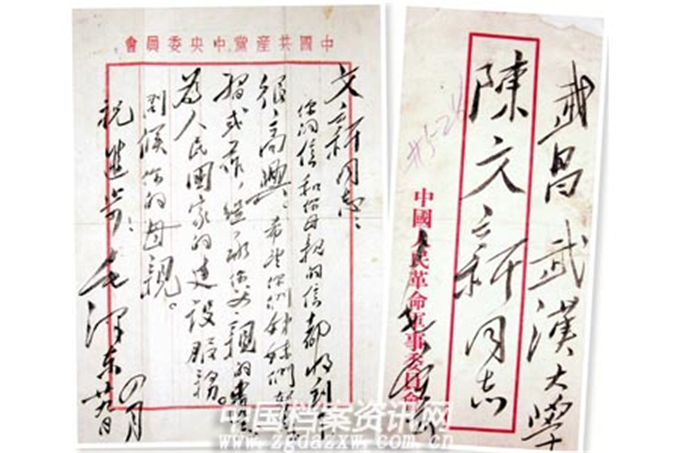 中國共產黨中央委員會
文新同志：
你的信和你母親的信都收到
很高興。希望你們姊妹們努力
習或工作，繼承你父親的遺志
為人民國家的建設服務。
問候你的母親。
祝進步！
毛澤東
四月
廿九日
武昌武漢大學
陳文新同志
中國人民革命軍事委員會
中国档案资讯网
www.zgdazxw.com.cn